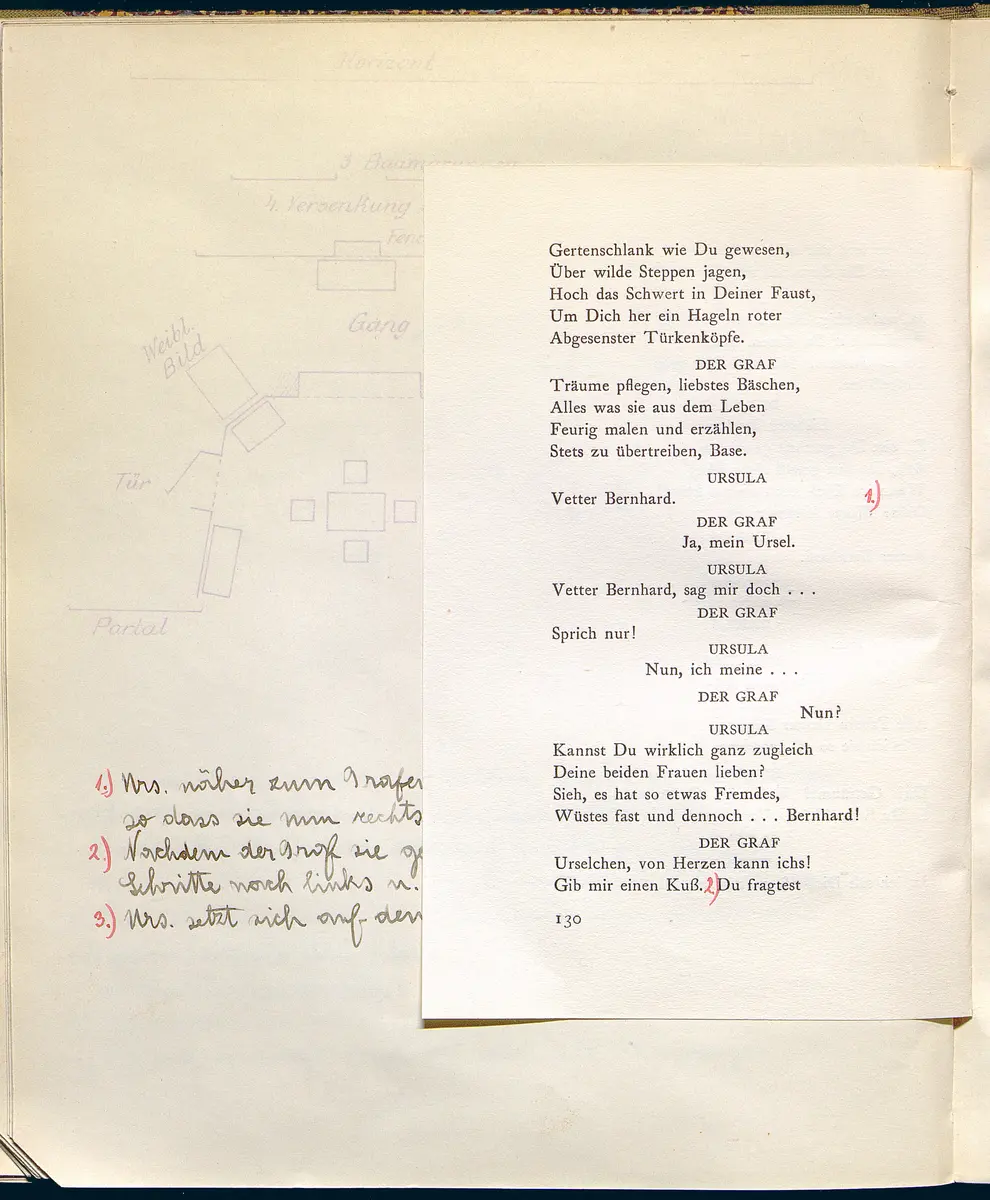 Horizont
4. Versenkung
Gang
Weibl.
Bild
Tür
Portal
1.) Urs. näher zum Grafen
so dass sie nun rechts
2.) Nachdem der Graf sie
Schritte nach links u.
3.) Urs. setzt sich auf den
Gertenschlank wie Du gewesen,
Über wilde Steppen jagen,
Hoch das Schwert in Deiner Faust,
Um Dich her ein Hageln roter
Abgesenster Türkenköpfe.
DER GRAF
Träume pflegen, liebstes Bäschen,
Alles was sie aus dem Leben
Feurig malen und erzählen,
Stets zu übertreiben, Base.
URSULA
Vetter Bernhard. 1.)
DER GRAF
Ja, mein Ursel.
URSULA
Vetter Bernhard, sag mir doch . . .
DER GRAF
Sprich nur!
URSULA
Nun, ich meine . . .
DER GRAF
Nun?
URSULA
Kannst Du wirklich ganz zugleich
Deine beiden Frauen lieben?
Sieh, es hat so etwas Fremdes,
Wüstes fast und dennoch . . . Bernhard!
DER GRAF
Urselchen, von Herzen kann ichs!
Gib mir einen Kuß. 2.) Du fragtest
130